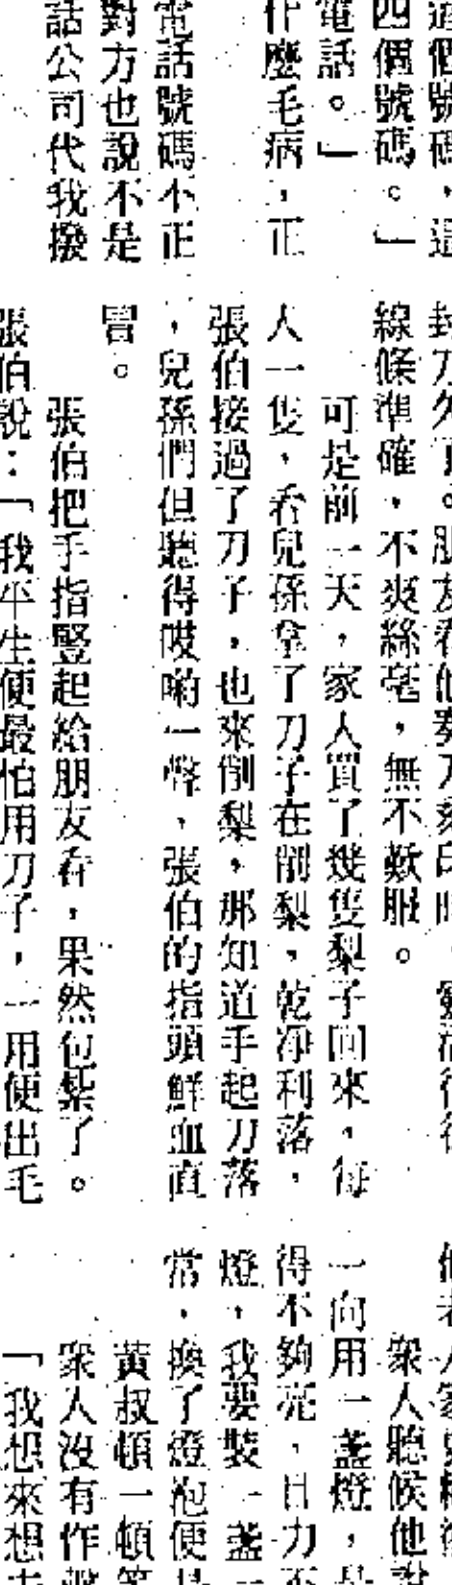 這個號碼，這
四個號碼。」
電話。」
什麼毛病，正
電話號碼不正
對方也說不是
話公司代我撥
線條準確，不爽絲毫，無不歎服。
可是前一天，家人買了幾隻梨子回來，每
人一隻，看兒孫拿了刀子在削梨，乾淨利落，
張伯接過了刀子，也來削梨，那知道手起刀落
，兒孫們但聽得哎喲一聲，張伯的指頭鮮血直
冒。
張伯把手指豎起給朋友看，果然包紮了。
張伯說：「我平生便最怕用刀子，一用便出毛
眾人聽候他說
一向用一盞燈，
得不夠亮，目力不
燈，我要裝一盞
常，換了燈泡便
黃叔頓一頓
眾人沒有作聲
「我想來想去